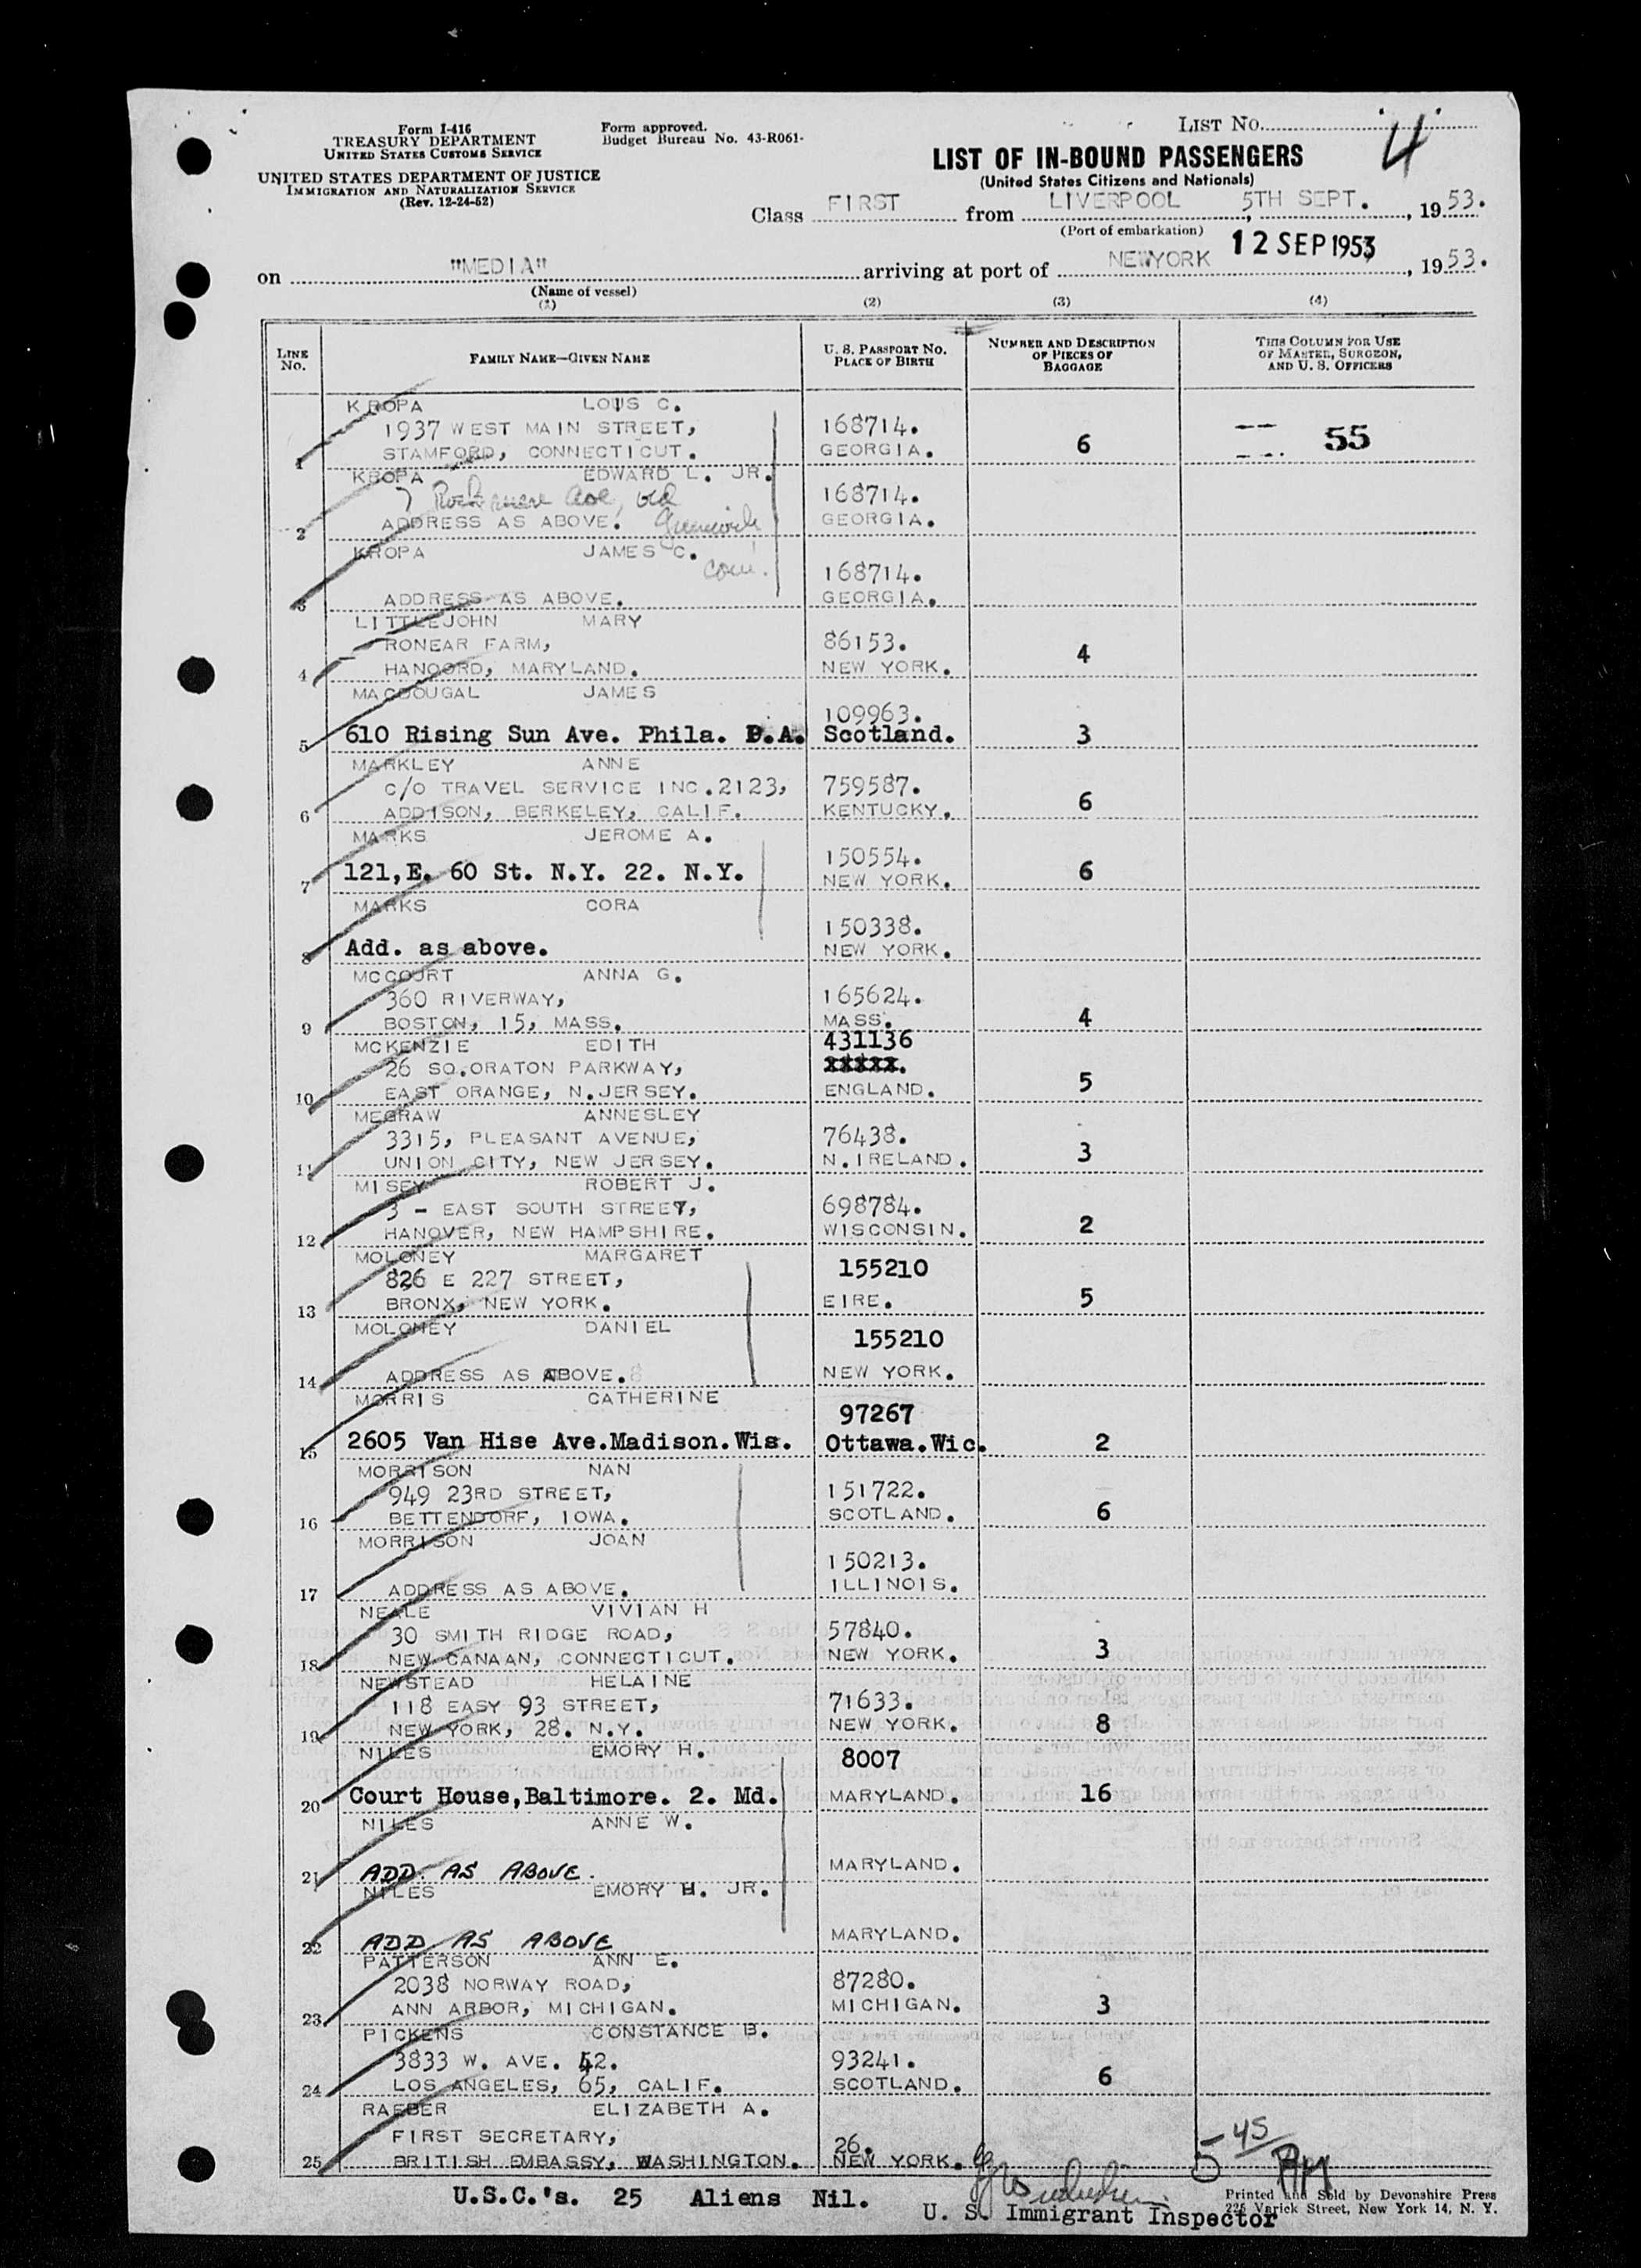 LIST NO. 4
Form I-416
TREASURY DEPARTMENT
UNITED STATES CUSTOMS SERVICE
UNITED STATES DEPARTMENT OF JUSTICE
IMMIGRATION AND NATURALIZATION SERVICE
(Rev. 12-24-52)
Form approved.
Budget Bureau No. 43-R061-
LIST OF IN-BOUND PASSENGERS
(United States Citizens and Nationals)
Class FIRST from LIVERPOOL, 5TH SEPT., 1953.
(Port of embarkation)
on "MEDIA" arriving at port of NEWYORK 12 SEP 1953, 1953.
(Name of vessel)
(1) (2) (3) (4)
LINE No. FAMILY NAME—GIVEN NAME U. S. PASSPORT NO. PLACE OF BIRTH NUMBER AND DESCRIPTION OF PIECES OF BAGGAGE THIS COLUMN FOR USE OF MASTER, SURGEON, AND U. S. OFFICERS
KROPA LOUS C.
1937 WEST MAIN STREET, 168714.
1 STAMFORD, CONNECTICUT. GEORGIA. 6 55
KROPA EDWARD L. JR.
7 Ave, Old 168714.
2 ADDRESS AS ABOVE. Greenwich GEORGIA.
KROPA JAMES C.
Conn. 168714.
3 ADDRESS AS ABOVE. GEORGIA.
LITTLEJOHN MARY
RONEAR FARM, 86153.
4 HANOORD, MARYLAND. NEW YORK. 4
MACDOUGAL JAMES
109963.
5 610 Rising Sun Ave. Phila. P.A. Scotland. 3
MARKLEY ANNE
C/O TRAVEL SERVICE INC.2123, 759587.
6 ADDISON, BERKELEY, CALIF. KENTUCKY. 6
MARKS JEROME A.
150554.
7 121,E. 60 St. N.Y. 22. N.Y. NEW YORK. 6
MARKS CORA
150338.
8 Add. as above. NEW YORK.
MCCOURT ANNA G.
360 RIVERWAY, 165624.
9 BOSTON, 15, MASS. MASS. 4
MCKENZIE EDITH 431136
26 SO.ORATON PARKWAY, xxxxx.
10 EAST ORANGE, N.JERSEY. ENGLAND. 5
MEGRAW ANNESLEY
3315, PLEASANT AVENUE, 76438.
11 UNION CITY, NEW JERSEY. N.IRELAND. 3
MISEY ROBERT J.
3 - EAST SOUTH STREET, 698784.
12 HANOVER, NEW HAMPSHIRE. WISCONSIN. 2
MOLONEY MARGARET
826 E 227 STREET, 155210
13 BRONX, NEW YORK. EIRE. 5
MOLONEY DANIEL
155210
14 ADDRESS AS ABOVE. NEW YORK.
MORRIS CATHERINE
97267
15 2605 Van Hise Ave.Madison.Wis. Ottawa.Wic. 2
MORRISON NAN
949 23RD STREET, 151722.
16 BETTENDORF, IOWA. SCOTLAND. 6
MORRISON JOAN
150213.
17 ADDRESS AS ABOVE. ILLINOIS.
NEALE VIVIAN H
30 SMITH RIDGE ROAD, 57840.
18 NEW CANAAN, CONNECTICUT. NEW YORK. 3
NEWSTEAD HELAINE
118 EASY 93 STREET, 71633.
19 NEW YORK, 28. N.Y. NEW YORK. 8
NILES EMORY H.
8007
20 Court House,Baltimore. 2. Md. MARYLAND. 16
NILES ANNE W.
21 ADD. AS ABOVE. MARYLAND.
NILES EMORY H. JR.
22 ADD AS ABOVE MARYLAND.
PATTERSON ANN E.
2038 NORWAY ROAD, 87280.
23 ANN ARBOR, MICHIGAN. MICHIGAN. 3
PICKENS CONSTANCE B.
3833 W. AVE. 42. 93241.
24 LOS ANGELES, 65, CALIF. SCOTLAND. 6
RAEBER ELIZABETH A.
FIRST SECRETARY, 26.
25 BRITISH EMBASSY, WASHINGTON. NEW YORK.
5 45 PM
U.S.C.'s. 25 Aliens Nil.
U. S. Immigrant Inspector
Printed and Sold by Devonshire Press
225 Varick Street, New York 14, N. Y.